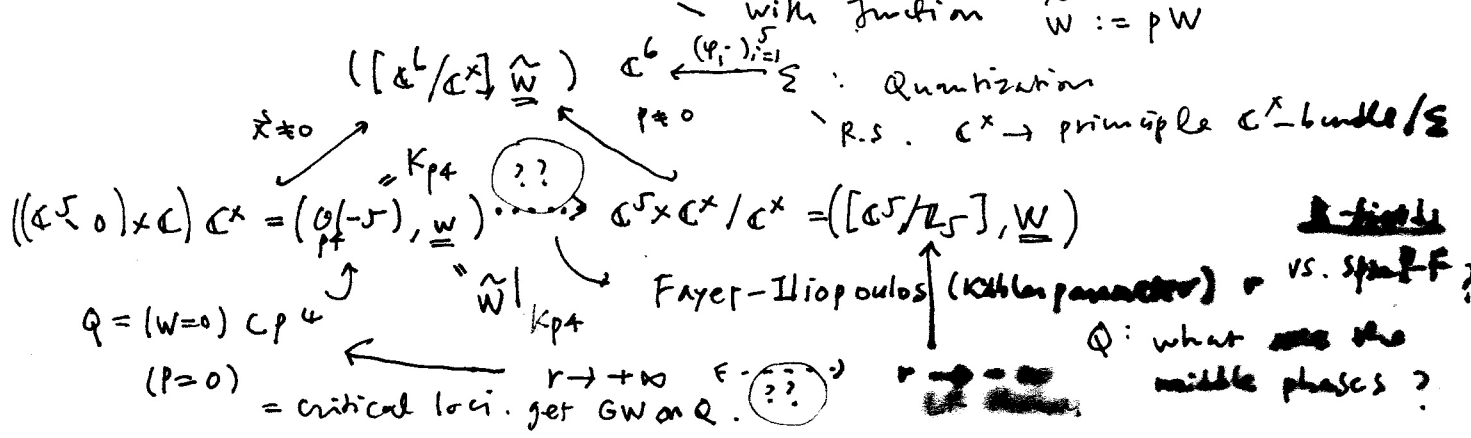 with function W̃ := pW
([ℂ⁶/ℂˣ], W̃) ℂ⁶ ←(φᵢ)ᵢ₌₁⁵ Σ : Quantization
x⃗≠0 p≠0 R.S. ℂˣ → principle ℂˣ-bundle/Σ
= K_p4 ??
((ℂ⁵∖0)×ℂ)/ℂˣ = (O(-5), W) ·····> ℂ⁵×ℂˣ/ℂˣ = ([ℂ⁵/ℤ₅], W)
p4
" W̃|_Kp4 Fayer-Iliopoulos (Kähler parameter) r vs. Spin
Q = (W=0) ⊂ p⁴ Q: what the
(P=0) r → +∞ ?? r → middle phases?
= critical loci. get GW on Q.